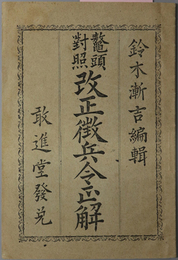 鈴木漸吉編輯
鼇頭
對照
改正徴兵令正解
敢進堂發兌